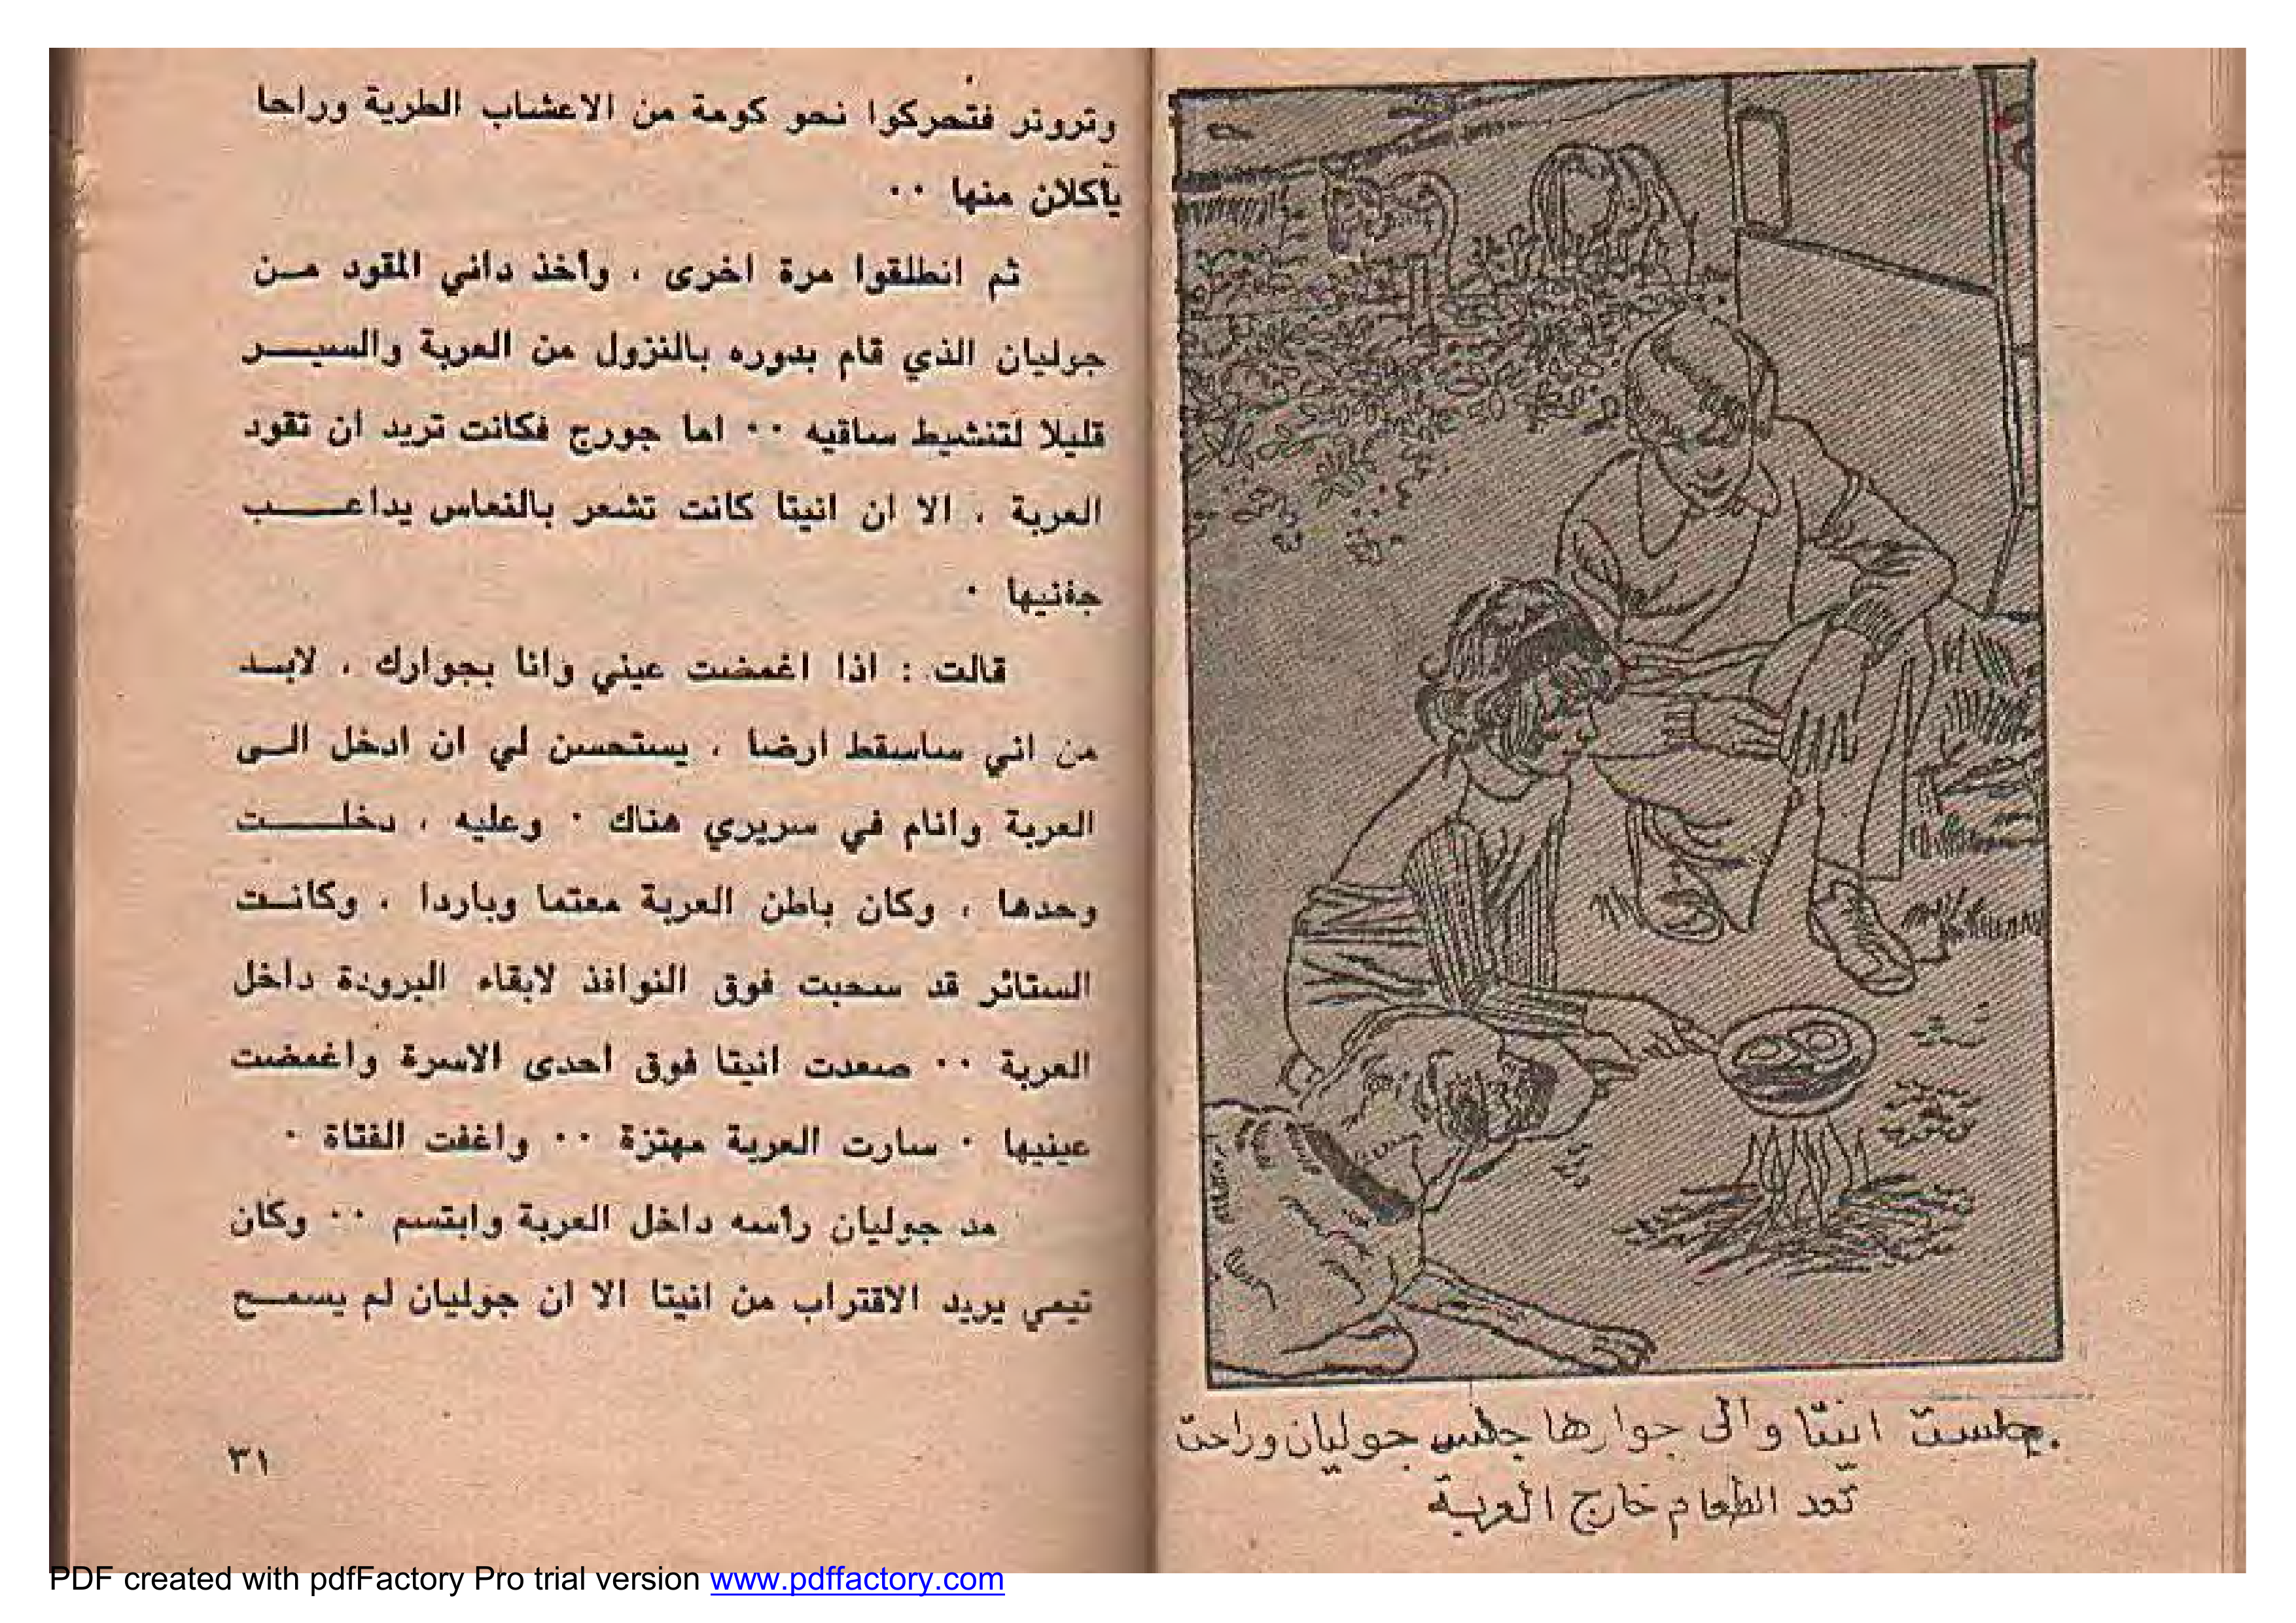 .جلست انيتا والى جوارها جلس جوليان وراحت
تعد الطعام خارج العربة
وتروتر فتحركوا نحو كومة من الاعشاب الطرية وراحا
يأكلان منها ٠٠
ثم انطلقوا مرة اخرى ، وأخذ داني المقود مـن
جوليان الذي قام بدوره بالنزول من العربة والسيـــر
قليلا لتنشيط ساقيه ٠٠ اما جورج فكانت تريد ان تقود
العربة ، الا ان انيتا كانت تشعر بالنعاس يداعــــب
جفنيها ٠
قالت : اذا اغمضت عيني وانا بجوارك ، لابــد
من اني ساسقط ارضا ، يستحسن لي ان ادخل الــى
العربة وانام في سريري هناك ٠ وعليه ، دخلــــت
وحدها ، وكان باطن العربة معتما وباردا ، وكانــت
الستائر قد سحبت فوق النوافذ لابقاء البرودة داخل
العربة ٠٠ صعدت انيتا فوق احدى الاسرة واغمضت
عينيها ٠ سارت العربة مهتزة ٠٠ واغفت الفتاة ٠
مد جوليان رأسه داخل العربة وابتسم ٠٠ وكان
تيمي يريد الاقتراب من انيتا الا ان جوليان لم يسمــح
٣١
PDF created with pdfFactory Pro trial version www.pdffactory.com